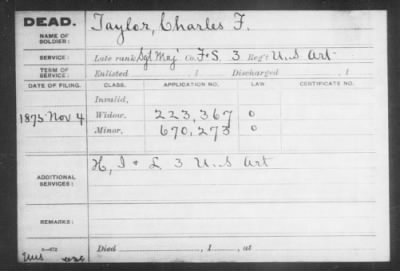 DEAD.
NAME OF SOLDIER:
Taylor, Charles F.
SERVICE:
Late rank, Sgt Maj Co. F&S. 3 Reg't U.S Art
TERM OF SERVICE:
Enlisted , 1 Discharged , 1
DATE OF FILING. CLASS. APPLICATION NO. LAW. CERTIFICATE NO.
Invalid,
1875 Nov 4 Widow, 223,367 0
Minor, 670,273 0
ADDITIONAL SERVICES:
H, I & L 3 U.S Art
REMARKS:
Died , 1 , at